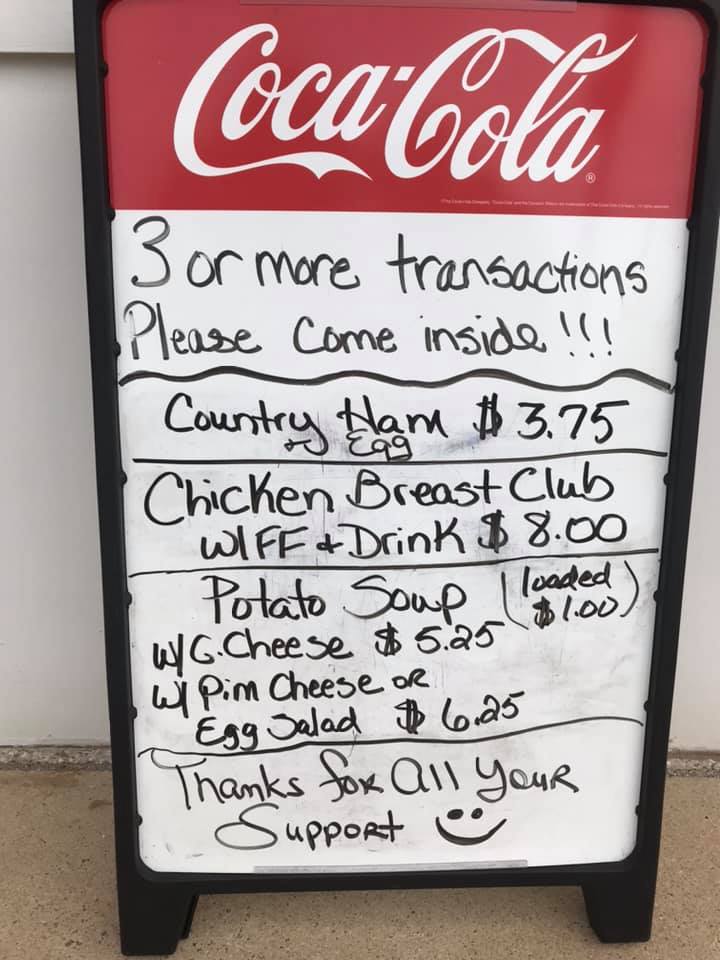 Coca-Cola
3 or more transactions
Please Come inside!!!
Country Ham $3.75
Egg
Chicken Breast Club
W/FF + Drink $8.00
Potato Soup (loaded
$1.00)
w/G.Cheese $5.25
w/ Pim Cheese or
Egg Salad $6.25
Thanks for All Your
Support